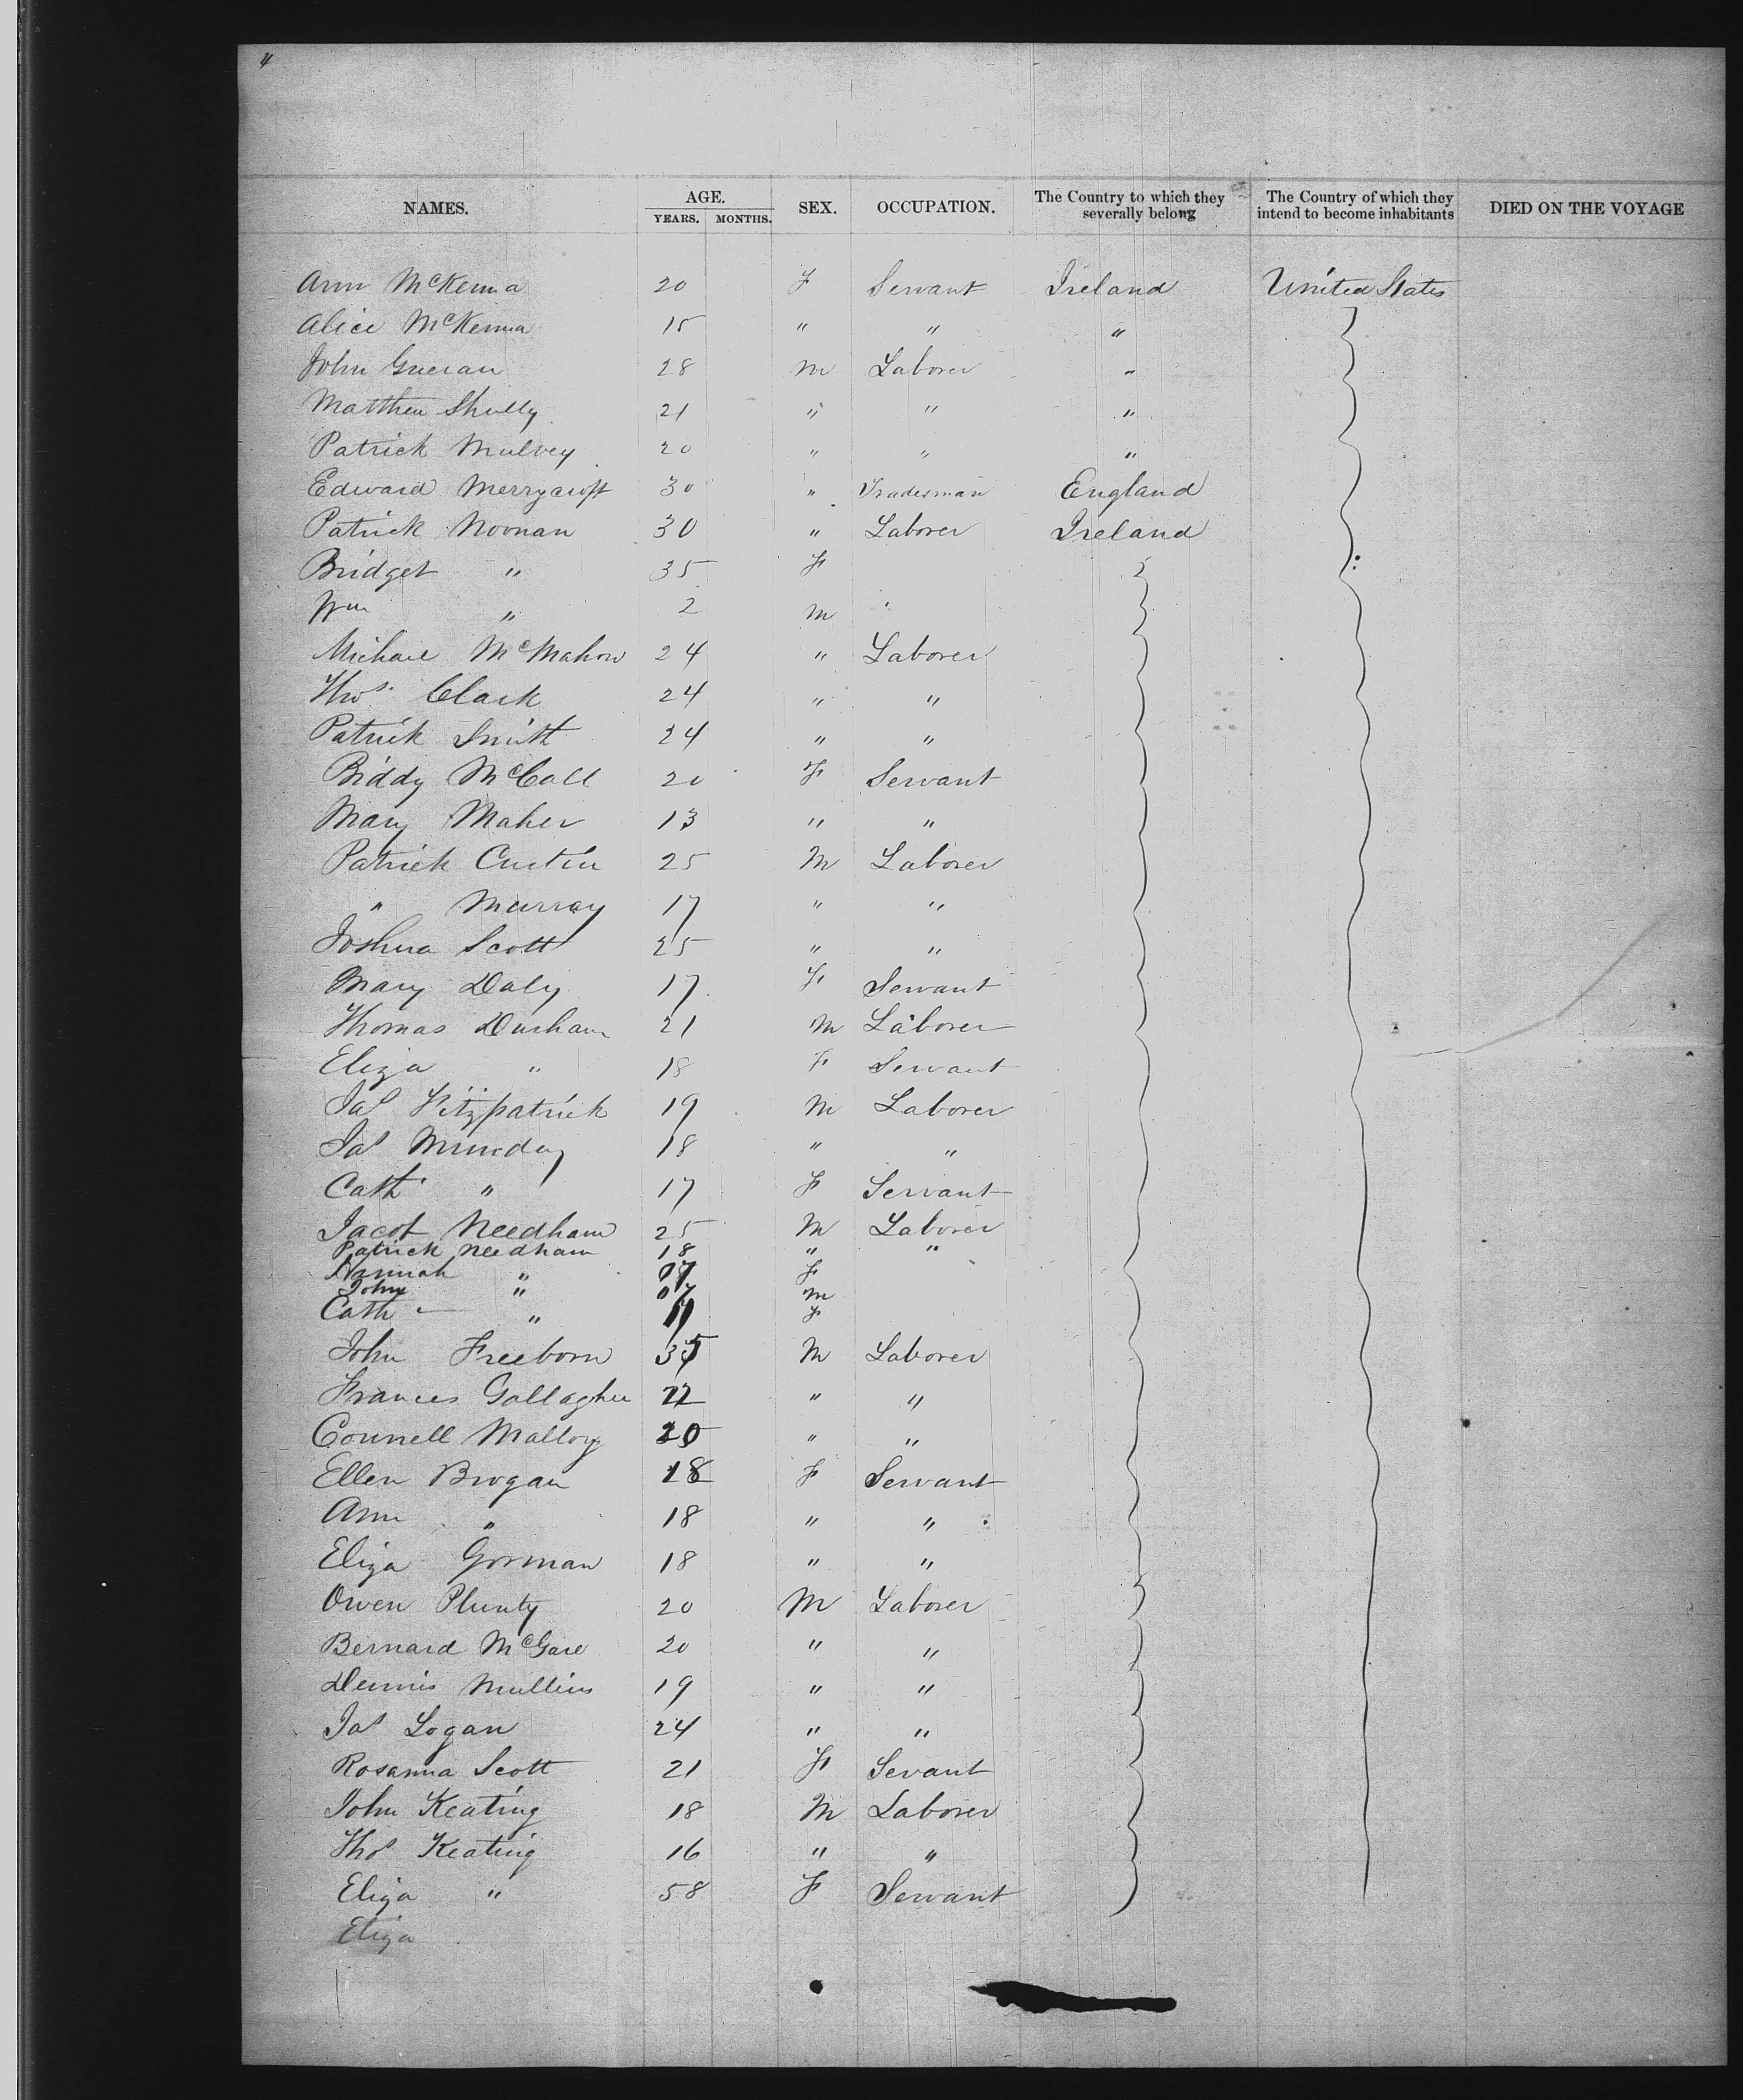 4
NAMES. AGE. YEARS. MONTHS. SEX. OCCUPATION. The Country to which they severally belong The Country of which they intend to become inhabitants DIED ON THE VOYAGE
Ann McKenna 20 F Servant Ireland United States
Alice McKenna 15 " " "
John Gueran 28 M Laborer "
Matthew Shully 21 " " "
Patrick Mulvey 20 " " "
Edward Merrycroft 30 " Tradesman England
Patrick Noonan 30 " Laborer Ireland
Bridget " 35 F
Wm " 2 M
Michael McMahon 24 " Laborer
Thos Clark 24 " "
Patrick Smith 24 " "
Biddy McCall 20 F Servant
Mary Maher 13 " "
Patrick Curtin 25 M Laborer
" Murray 17 " "
Joshua Scott 25 " "
Mary Daly 17 F Servant
Thomas Durham 21 M Laborer
Eliza " 18 F Servant
Jas Fitzpatrick 19 M Laborer
Jas Munday 18 " "
Cath " 17 F Servant
Jacob Needham 25 M Laborer
Patrick Needham 18 " "
Hannah " F
John " M
Cath " F
John Freeborn M Laborer
Frances Gallagher 22 " "
Connell Malloy 20 " "
Ellen Brogan 18 F Servant
Ann " 18 " "
Eliza Gorman 18 " "
Owen Plunty 20 M Laborer
Bernard McGare 20 " "
Dennis Mullins 19 " "
Jas Logan 24 " "
Rosanna Scott 21 F Sevant
John Keating 18 M Laborer
Thos Keating 16 " "
Eliza " 58 F Servant
Eliza